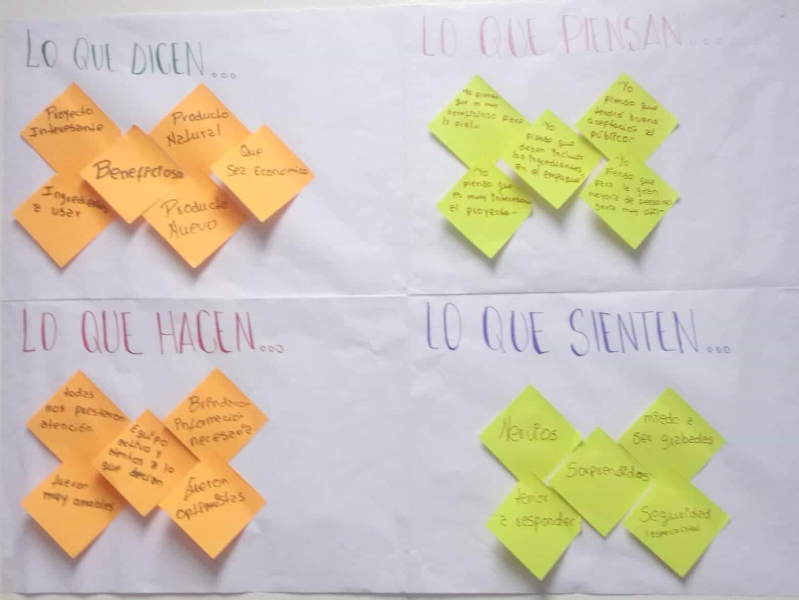 LO QUE DICEN...
Proyecto
Interesante
Producto
Natural
Que
Sea Economico
Beneficioso
Ingredientes
a usar
Producto
Nuevo
LO QUE PIENSAN...
Yo pienso
que es muy
beneficioso para
la piel.
Yo
pienso que
deben incluir
los ingredientes
en el empaque
Yo
pienso que
tendrá buena
aceptación al
público.
Yo
pienso que
es muy interesante
el proyecto
Yo
Pienso que
para la gran
mayoría de personas
sería muy útil
LO QUE HACEN...
todas
nos prestaron
atención
Equipo
activo y
atentos a lo
que decían
Brindaron
Información
necesaria
fueron
muy amables
fueron
optimistas
LO QUE SIENTEN...
Nervios
miedo a
Ser grabadas
Sorprendidos
temor
a responder
Seguridad